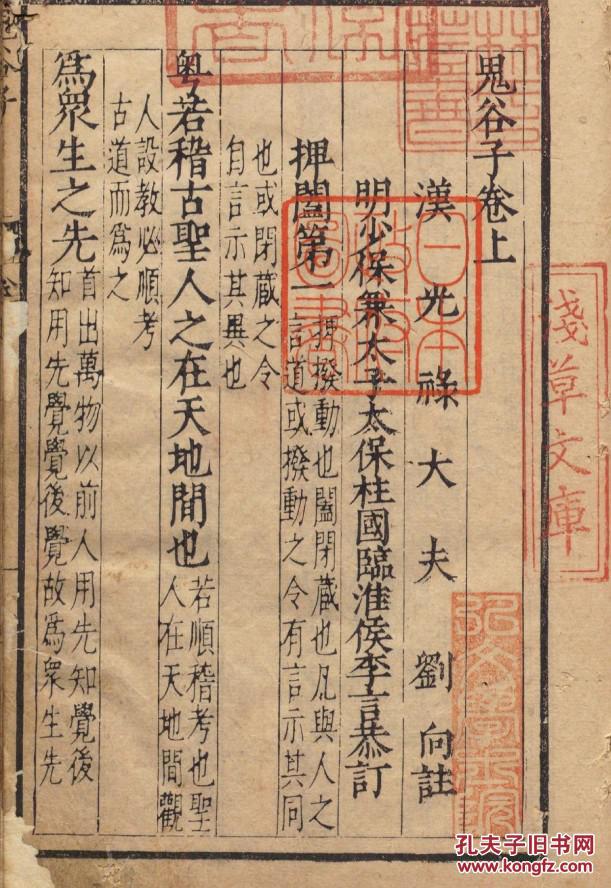 淺草文庫
林氏藏書
日本政府圖書
鬼谷子卷上
漢光祿大夫劉向註
明少保兼太子太保柱國臨淮侯李言恭訂
押闔第一
押撥動也闔閉藏也凡與人之
言道或撥動之令有言示其同
也或閉藏之令
自言示其異也
粤若稽古聖人之在天地間也
若順稽考也聖
人在天地間觀
人設教必順考
古道而爲之
爲眾生之先
首出萬物以前人用先知覺後
知用先覺覺後覺故爲眾生先
孔夫子旧书网
www.kongfz.com